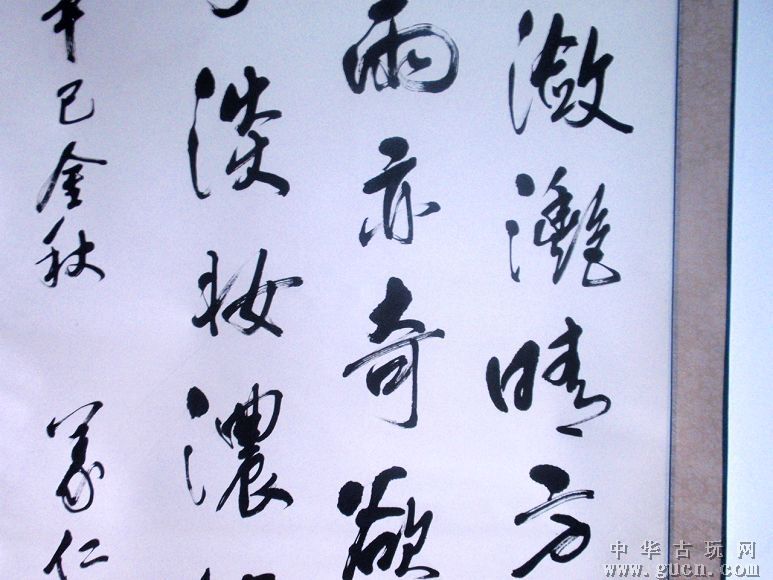 潋滟晴方
雨亦奇欲
淡妆濃
辛巳金秋 义仁
中华古玩网
www.gucn.com